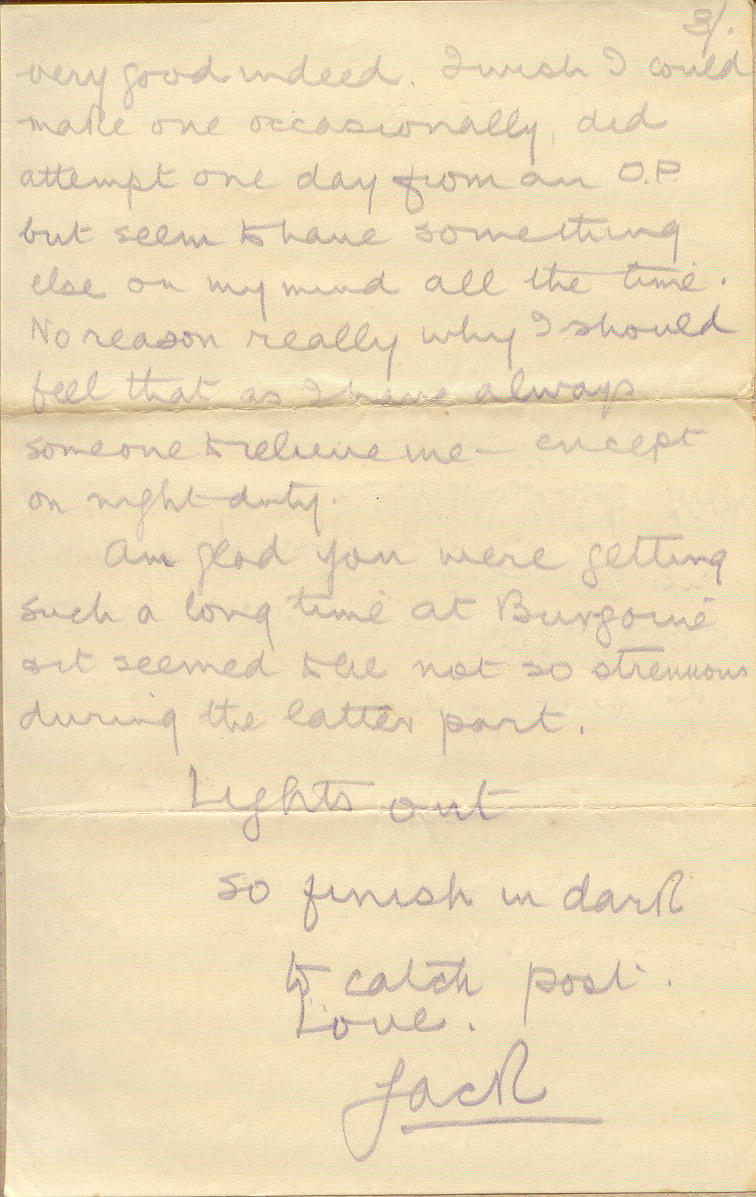 3/.
very good indeed. I wish I could
make one occasionally, did
attempt one day from an O.P.
but seem to have something
else on my mind all the time.
No reason really why I should
feel that as I have always
someone to relieve me - except
on night duty.
Am glad you were getting
such a long time at Burgoine
it seemed to be not so strenuous
during the latter part.
Lights out
so finish in dark
to catch post.
Love.
Jack